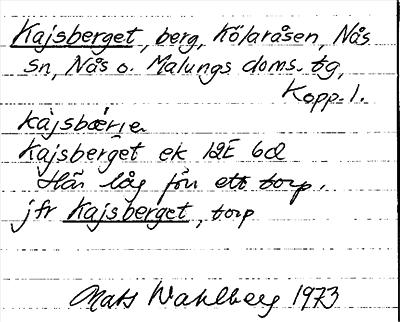 Kajsberget, berg, Kölaråsen, Nås
sn, Nås o. Malungs doms. tg,
Kopp. l.
Kajsberget ek 12E 6d
Här låg förr ett torp.
jfr Kajsberget, torp
Mats Wahlberg 1973